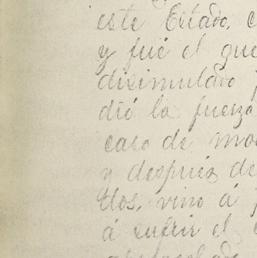 este Estado, c
y fué el que
disimulado p
dió la fuerza
caso de mo
y después de
tlos, vino á p
á sufrir el